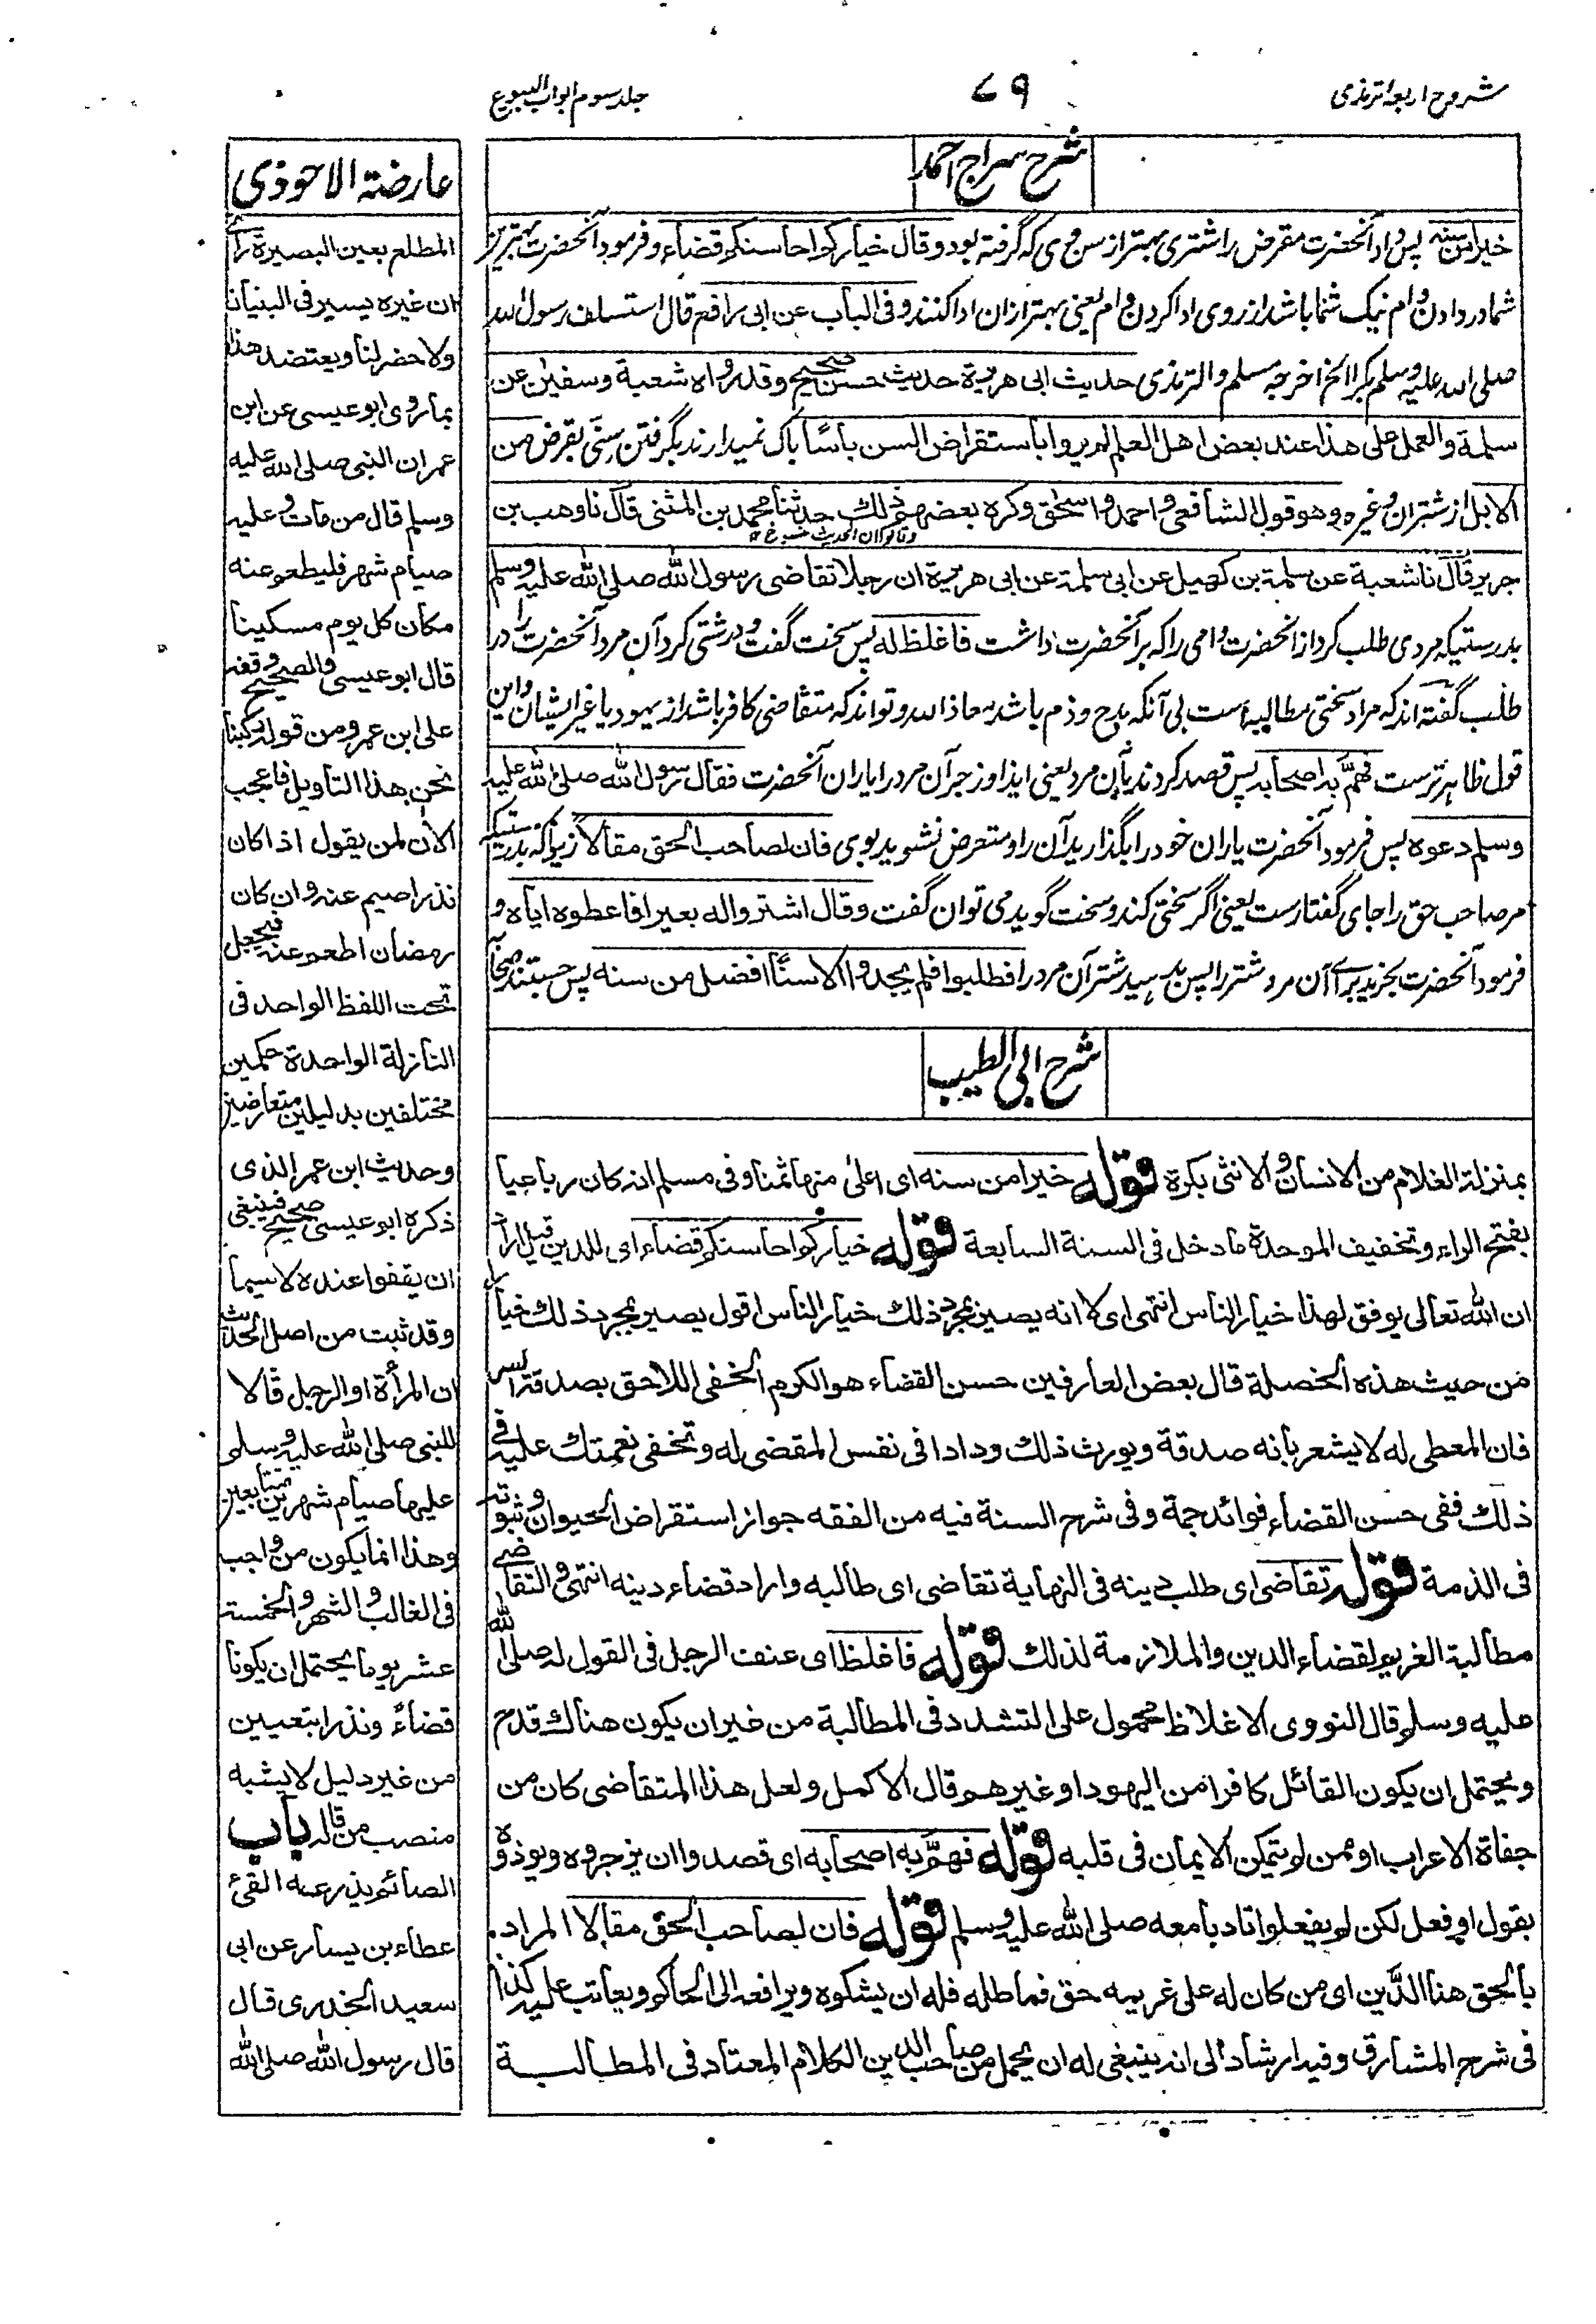 شروح اربعہ ترمذی
٧٩
جلد سوم ابواب البیوع
شرح سراج احمد
خیرا من سنه پس داد آنحضرت مقرض را شتری بهتر از سن وی که گرفته بود وقال خیارکم احاسنکم قضاء و فرمود آنحضرت بهترین
شما در دادن وام نیک شما باشد از روی ادا کردن وام یعنی بهتر ازان ادا کنند وفی الباب عن ابی رافع قال استسلف رسول الله
صلی الله علیه وسلم بکرا الخ اخرجه مسلم والترمذی حدیث ابی هریرة حدیث حسن صحیح وقد رواه شعبة وسفین عن
سلمة والعمل علی هذا عند بعض اهل العلم لم یروا باستقراض السن باسًا باک نمیدارند بگرفتن سنّی بقرض من
الابل از شتران وغیره وهو قول الشافعی واحمد واسحٰق وکره بعضهم ذلك حدثنا محمد بن المثنی قال نا وهب بن
جریر قال نا شعبة عن سلمة بن کهیل عن ابی سلمة عن ابی هریرة ان رجلا تقاضی رسول الله صلی الله علیه وسلم
بدرستیکه مردی طلب کرد از آنحضرت وامی را که بر آنحضرت داشت فاغلظ له پس سخت گفت ودرشتی کرد آن مرد آنحضرت را در
طلب گفته اند که مراد سختی مطالبه است بی آنکه قدح وذم باشد معاذ الله وتواند که متقاضی کافر باشد از یهود یا غیر ایشان واین
قول ظاهر ترست فهمّ به اصحابه پس قصد کردند بآن مرد یعنی ایذا وزجر آن مرد را یاران آنحضرت فقال رسول الله صلی الله علیه
وسلم دعوه پس فرمود آنحضرت یاران خود را بگذارید آن را ومتعرض نشوید بوی فان لصاحب الحق مقالا زیرا که بدرستیکه
مر صاحب حق را جای گفتارست یعنی اگر سختی کند وسخت گوید می توان گفت وقال اشتروا له بعیرا فاعطوه ایاه و
فرمود آنحضرت بخرید برای آن مرد شتر را پس بدهید شتر آن مرد را فطلبوا فلم یجدوا الا سنًّا افضل من سنه پس جستند صحابه
شرح ابی الطیب
بمنزلة الغلام من الانسان والانثی بکرة قوله خیرا من سنه ای اعلیٰ منها ثمنا وفی مسلم انه کان رباعیا
بفتح الراء وتخفیف الموحدة ما دخل فی السنة السابعة قوله خیارکم احاسنکم قضاء ای للدین قیل اراد
ان الله تعالی یوفق لهذا خیار الناس انتهی ای لا انه یصیر بمجرد ذلك خیار الناس اقول یصیر بمجرد ذلك خیار
من حیث هذه الخصلة قال بعض العارفین حسن القضاء هو الکرم الخفی اللاحق بصدقة السر
فان المعطی له لا یشعر بانه صدقة ویورث ذلك ودادا فی نفس المقضی له وتخفی نعمتك علیه فی
ذلك ففی حسن القضاء فوائد جمة وفی شرح السنة فیه من الفقه جواز استقراض الحیوان وثبوته
فی الذمة قوله تقاضی ای طلب دینه فی النهایة تقاضی ای طالبه واراد قضاء دینه انتهی والتقاضی
مطالبة الغریم لقضاء الدین والملازمة لذلك قوله فاغلظ ای عنف الرجل فی القول له صلی الله
علیه وسلم قال النووی الاغلاظ محمول علی التشدد فی المطالبة من غیر ان یکون هناك قدح
ویحتمل ان یکون القائل کافرا من الیهود او غیرهم قال الاکمل ولعل هذا المتقاضی کان من
جفاة الاعراب او ممن لم یتمکن الایمان فی قلبه قوله فهمّ به اصحابه ای قصدوا ان یزجروه ویوذوه
بقول او فعل لکن لم یفعلوا تادبا معه صلی الله علیه وسلم قوله فان لصاحب الحق مقالا المراد
بالحق هنا الدَّین ای من کان له علی غریمه حق فماطله فله ان یشکوه ویرافعه الی الحاکم ویعاتب علیه کذا
فی شرح المشارق وفیه ارشاد الی انه ینبغی له ان یحمل من صاحب الدین الکلام المعتاد فی المطالبة
عارضة الاحوذی
المطلع بعین البصیرة رای
ان غیره یسیر فی البنیان
ولا حضر لنا ویعتضد هذا
بما روی ابو عیسی عن ابن
عمر ان النبی صلی الله علیه
وسلم قال من مات وعلیه
صیام شهر فلیطعم عنه
مکان کل یوم مسکینا
قال ابو عیسی والصحیح وقفه
علی ابن عمر ومن قوله رکبنا
نحن هذا التاویل فاعجب
الآن لمن یقول اذا کان
نذر اصیم عنه وان کان
رمضان اطعم عنه فیجعل
تحت اللفظ الواحد فی
النازلة الواحدة حکمین
مختلفین بدلیلین متعارضین
وحدیث ابن عمر الذی
ذکره ابو عیسی صحیح فینبغی
ان یقفوا عنده لا سیما
وقد ثبت من اصل الحدیث
ان المرأة او الرجل قالا
للنبی صلی الله علیه وسلم
علیها صیام شهرین متتابعین
وهذا انما یکون من واجب
فی الغالب والشهر والخمسة
عشر یوما یحتمل ان یکونا
قضاءً ونذرا بتعیین
من غیر دلیل لا یشبه
منصب من قاله باب
الصائم یذرعه القیء
عطاء بن یسار عن ابی
سعید الخدری قال
قال رسول الله صلی الله